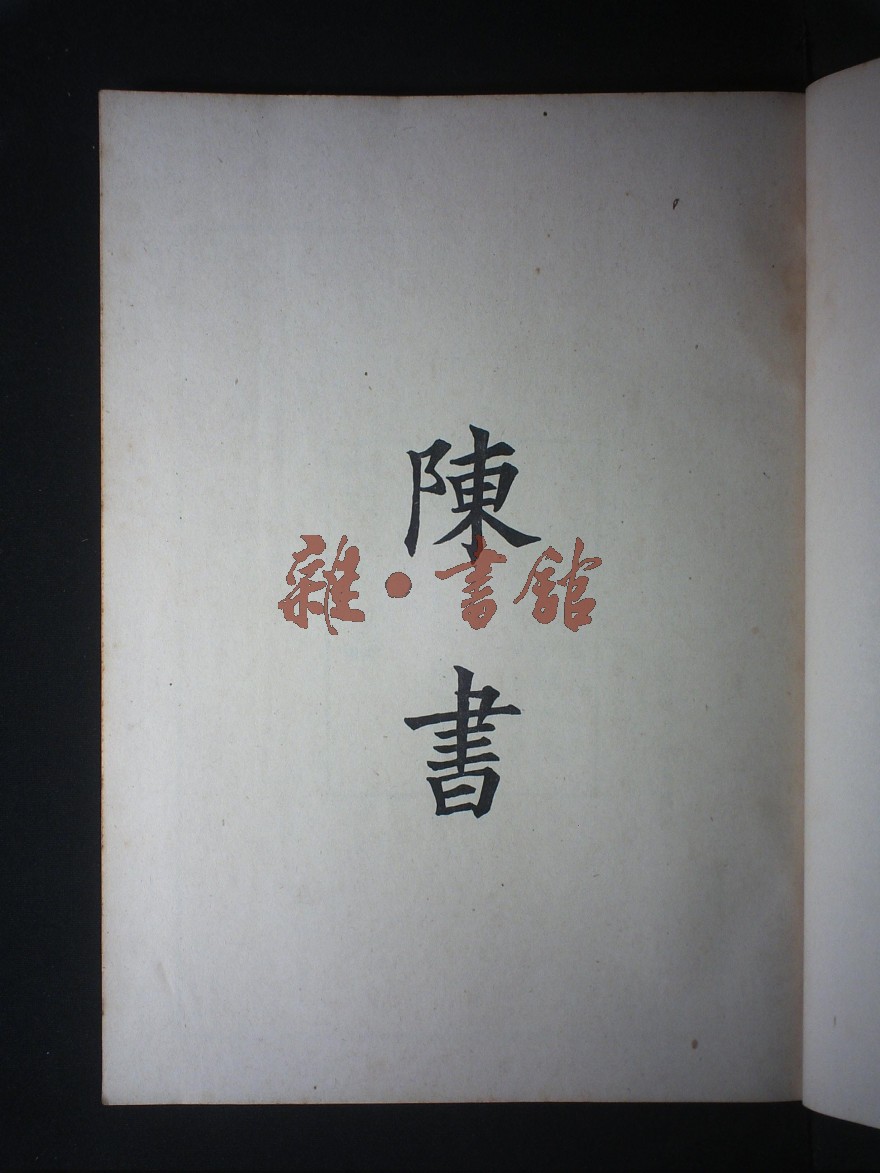 陳書
雜·書館